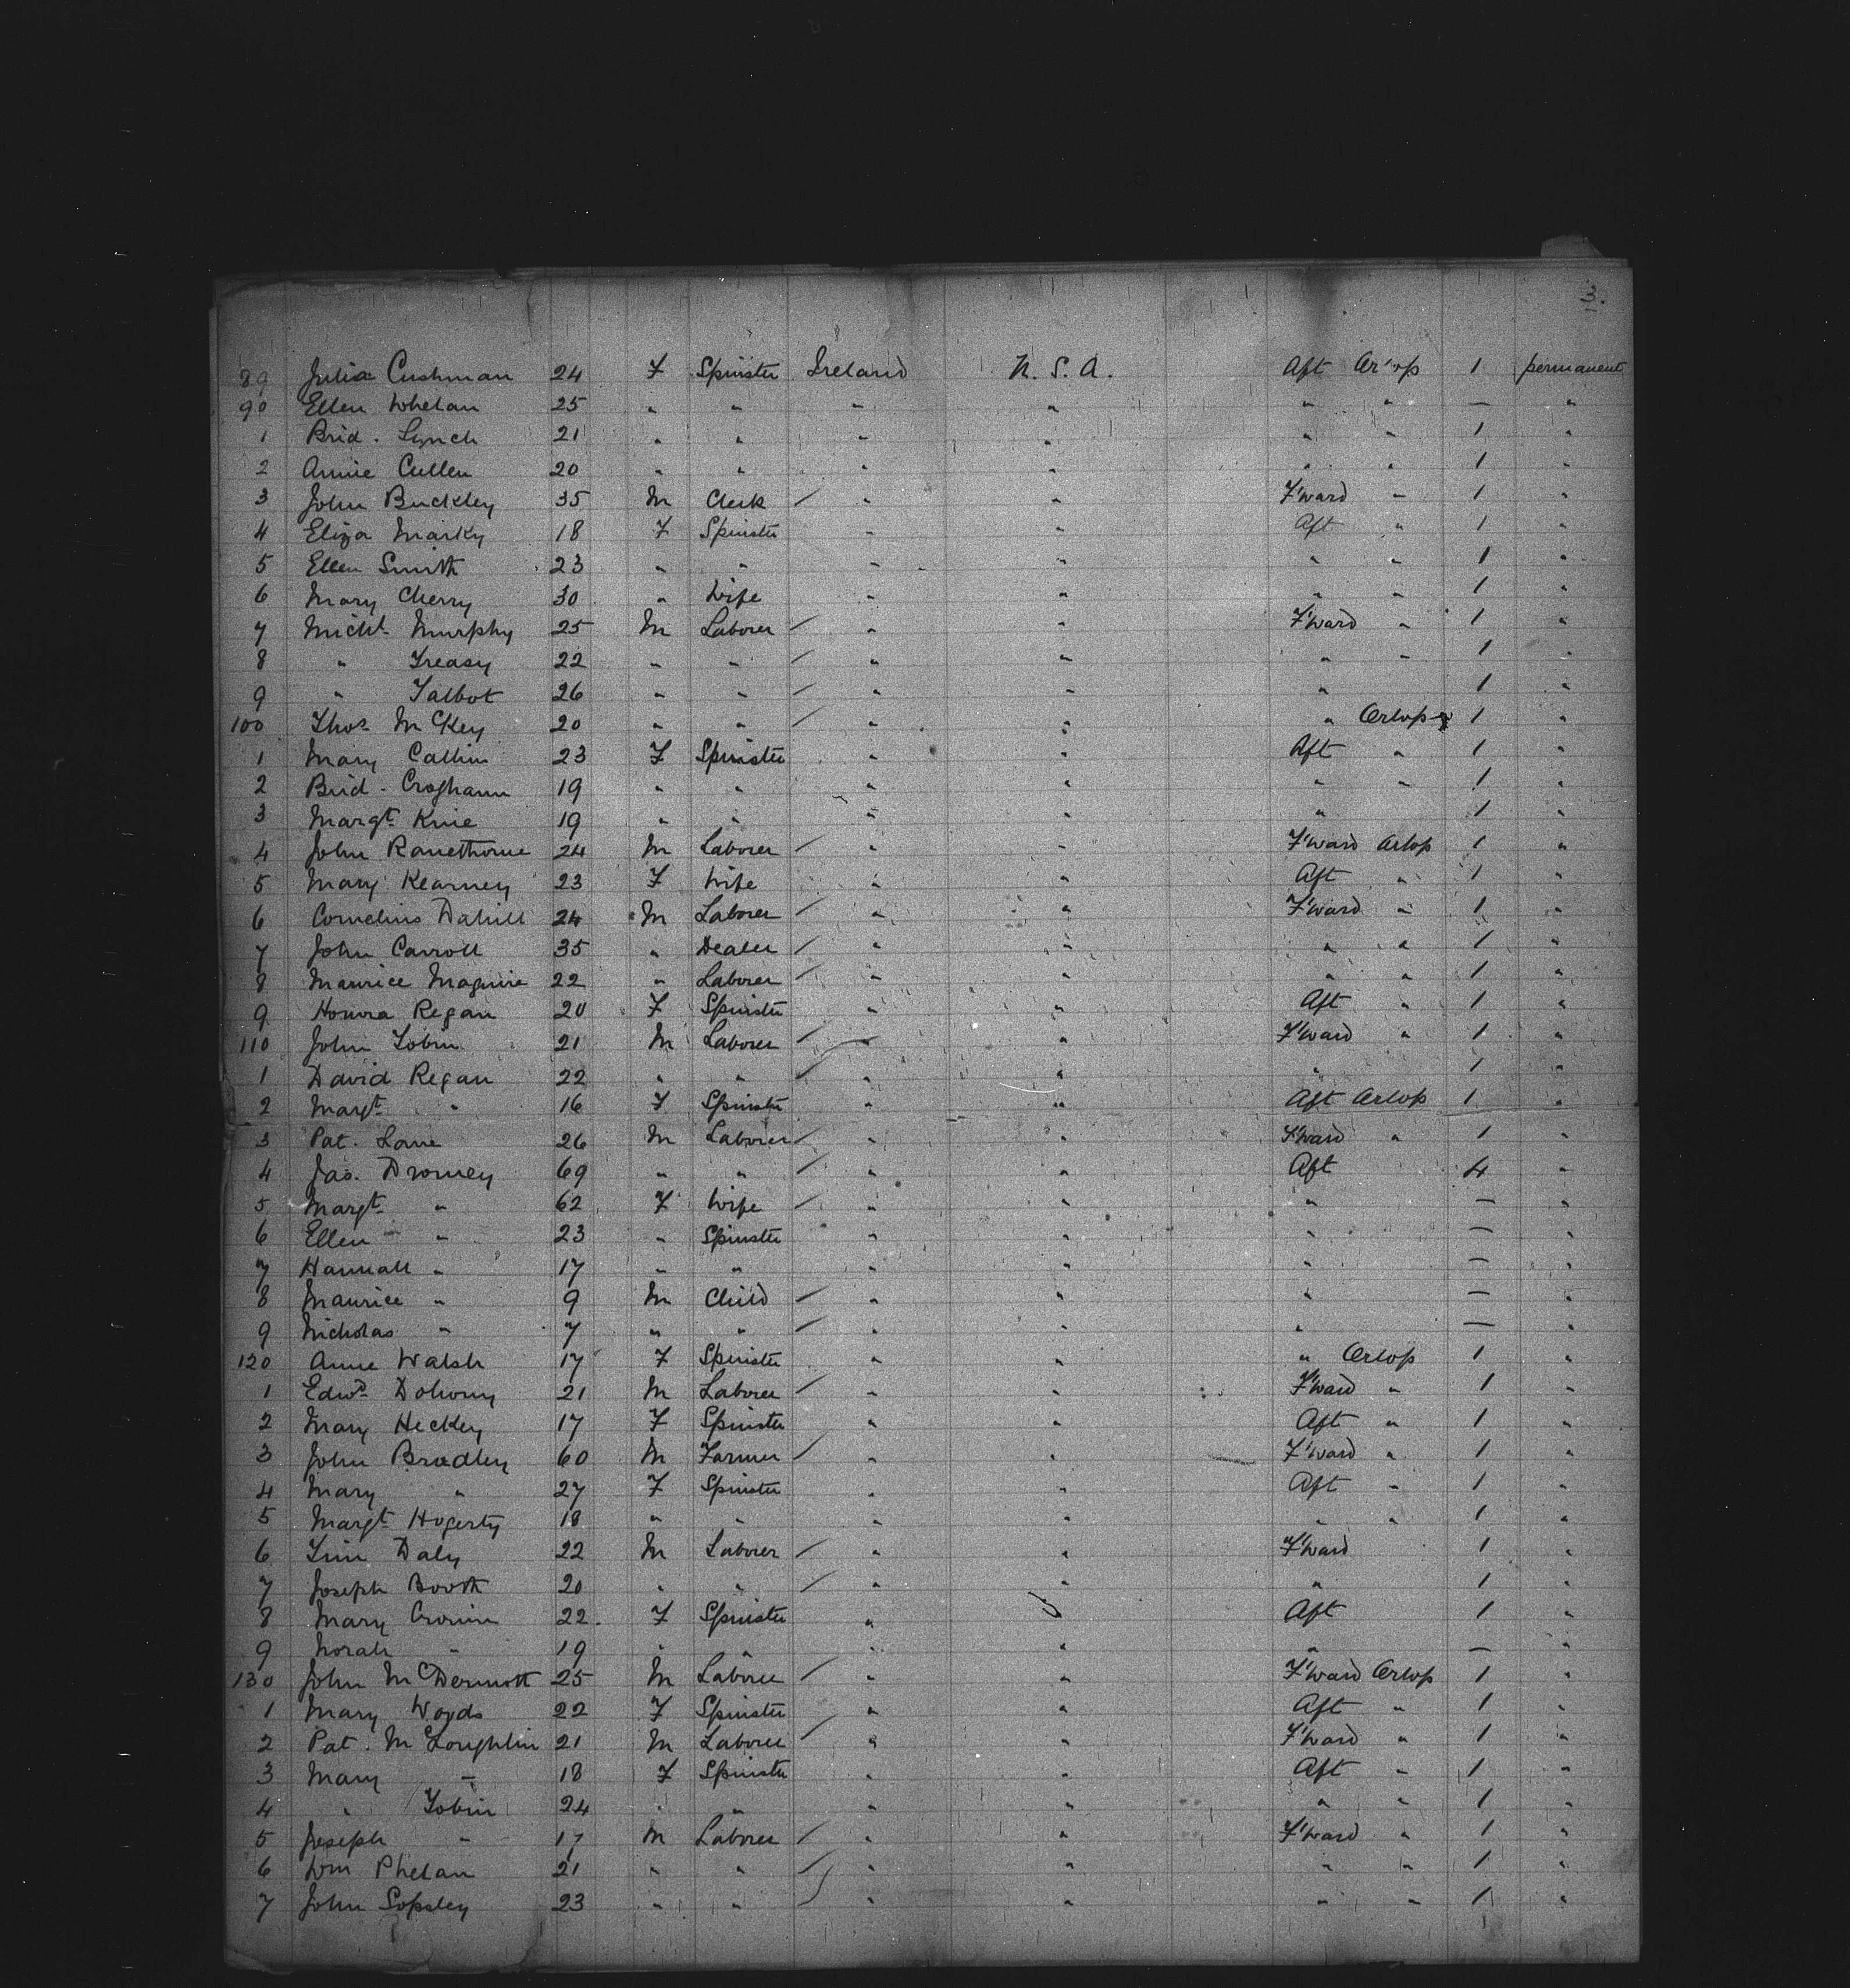 3.
89 Julia Cushman 24 F Spinster Ireland U. S. A. Aft Or'op 1 permanent
90 Ellen Whelan 25 " " " " " " — "
1 Brid. Lynch 21 " " " " " " 1 "
2 Annie Cullen 20 " " " " " " 1 "
3 John Buckley 35 M Clerk / " " F'ward " 1 "
4 Eliza Marky 18 F Spinster " " Aft " 1 "
5 Ellen Smith 23 " " " " " " 1 "
6 Mary Cherry 30 " Wife " " " " 1 "
7 Michl Murphy 25 M Laborer / " " F'ward " 1 "
8 " Treasy 22 " " / " " " " 1 "
9 " Talbot 26 " " / " " " 1 "
100 Thos McKey 20 " " / " " " Orlop 1 "
1 Mary Callin 23 F Spinster " " Aft " 1 "
2 Brid. Croghann 19 " " " " " " 1 "
3 Margt Knie 19 " " " " " 1 "
4 John Ranethorne 24 M Laborer / " " F'ward Orlop 1 "
5 Mary Kearney 23 F Wife " " Aft " 1 "
6 Cornelius Dahill 24 M Laborer / " " F'ward " 1 "
7 John Carroll 35 " Dealer / " " " " 1 "
8 Maurice Maguire 22 " Laborer / " " " " 1 "
9 Honora Regan 20 F Spinster " " Aft " 1 "
110 John Tobin 21 M Laborer / " " F'ward " 1 "
1 David Regan 22 " " / " " " 1 "
2 Margt " 16 F Spinster " " Aft Orlop 1 "
3 Pat. Lane 26 M Laborer / " " F'ward " 1 "
4 Jas. Dromey 69 " " / " " Aft 4 "
5 Margt " 62 F Wife / " " " — "
6 Ellen " 23 " Spinster " " " — "
7 Hannah " 17 " " " " " — "
8 Maurice " 9 M Child / " " " — "
9 Nicholas " 7 " " / " " " — "
120 Anne Walsh 17 F Spinster " " " Orlop 1 "
1 Edwd Dohony 21 M Laborer / " " F'ward " 1 "
2 Mary Heckey 17 F Spinster " " Aft " 1 "
3 John Bradley 60 M Farmer / " " F'ward " 1 "
4 Mary " 27 F Spinster " " Aft " 1 "
5 Margt Hogerty 18 " " " " " " 1 "
6 Tim Daly 22 M Laborer / " " F'ward 1 "
7 Joseph Booth 20 " " / " " " 1 "
8 Mary Cronin 22 F Spinster " " Aft 1 "
9 Norah " 19 " " " " " — "
130 John McDermott 25 M Laborer / " " F'ward Orlop 1 "
1 Mary Woods 22 F Spinster " " Aft " 1 "
2 Pat. McLoughlin 21 M Laborer / " " F'ward " 1 "
3 Mary " 18 F Spinster " " Aft " 1 "
4 " Tobin 24 " " " " " " 1 "
5 Joseph " 17 M Laborer / " " F'ward " 1 "
6 Wm Phelan 21 " " / " " " " 1 "
7 John Sopsley 23 " " / " " " " 1 "